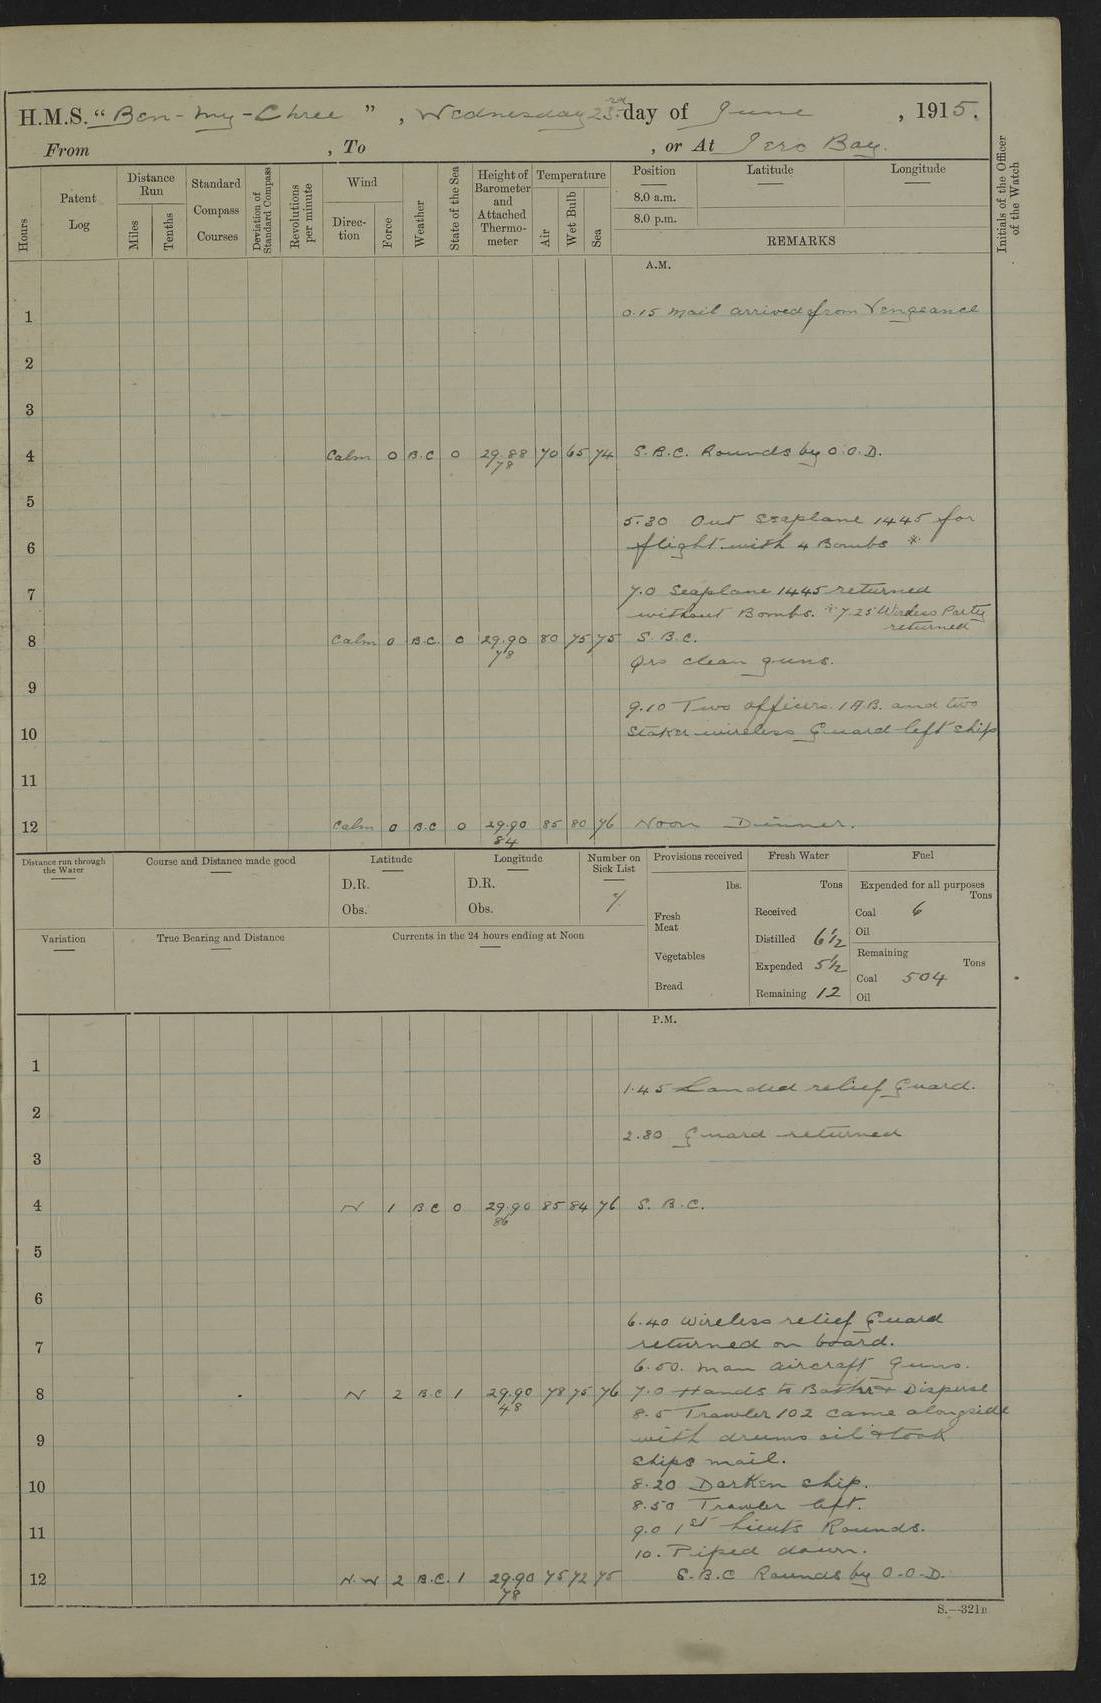 H.M.S. "Ben-my-Chree", Wednesday 23rd day of June, 1915.
From , To , or At Iero Bay.
Hours
Patent Log
Distance Run
Miles
Tenths
Standard Compass Courses
Deviation of Standard Compass
Revolutions per minute
Wind
Direction
Force
Weather
State of the Sea
Height of Barometer and Attached Thermometer
Temperature
Air
Wet Bulb
Sea
Position
8.0 a.m.
8.0 p.m.
Latitude
Longitude
REMARKS
Initials of the Officer of the Watch
A.M.
1 0.15 Mail arrived from Vengeance
2
3
4 Calm 0 B.C 0 29.88 70 65 74 S.B.C. Rounds by O.O.D.
78
5
5.30 Out Seaplane 1445 for
6 flight with 4 Bombs *
7 7.0 Seaplane 1445 returned
without Bombs. * 7.25 Wireless Party
returned
8 Calm 0 B.C. 0 29.90 80 75 75 S.B.C.
78
Qrs clean guns.
9
9.10 Two officers. 1 A.B. and two
10 Stoker wireless Guard left ship
11
12 Calm 0 B.C 0 29.90 85 80 76 Noon Dinner.
84
Distance run through the Water
Course and Distance made good
Latitude
D.R.
Obs.
Longitude
D.R.
Obs.
Number on Sick List
7
Provisions received
lbs.
Fresh Meat
Vegetables
Bread
Fresh Water
Tons
Received
Distilled 6½
Expended 5½
Remaining 12
Fuel
Expended for all purposes
Tons
Coal 6
Oil
Remaining
Tons
Coal 504
Oil
Variation
True Bearing and Distance
Currents in the 24 hours ending at Noon
P.M.
1
1.45 Landed relief Guard.
2
2.30 Guard returned
3
4 N 1 B C 0 29.90 85 84 76 S. B.C.
86
5
6
6.40 Wireless relief Guard
7 returned on board.
6.50. Man aircraft Guns.
8 N 2 B.C 1 29.90 78 75 76 7.0 Hands to Bathe & Disperse
48
8.5 Trawler 102 came alongside
9 with drums oil & took
ships mail.
10 8.20 Darken ship.
8.50 Trawler left.
11 9.0 1st Lieuts Rounds.
10. Piped down.
12 N.W 2 B.C. 1 29.90 75 72 75 S.B.C Rounds by O.O.D.
78
S.—321B